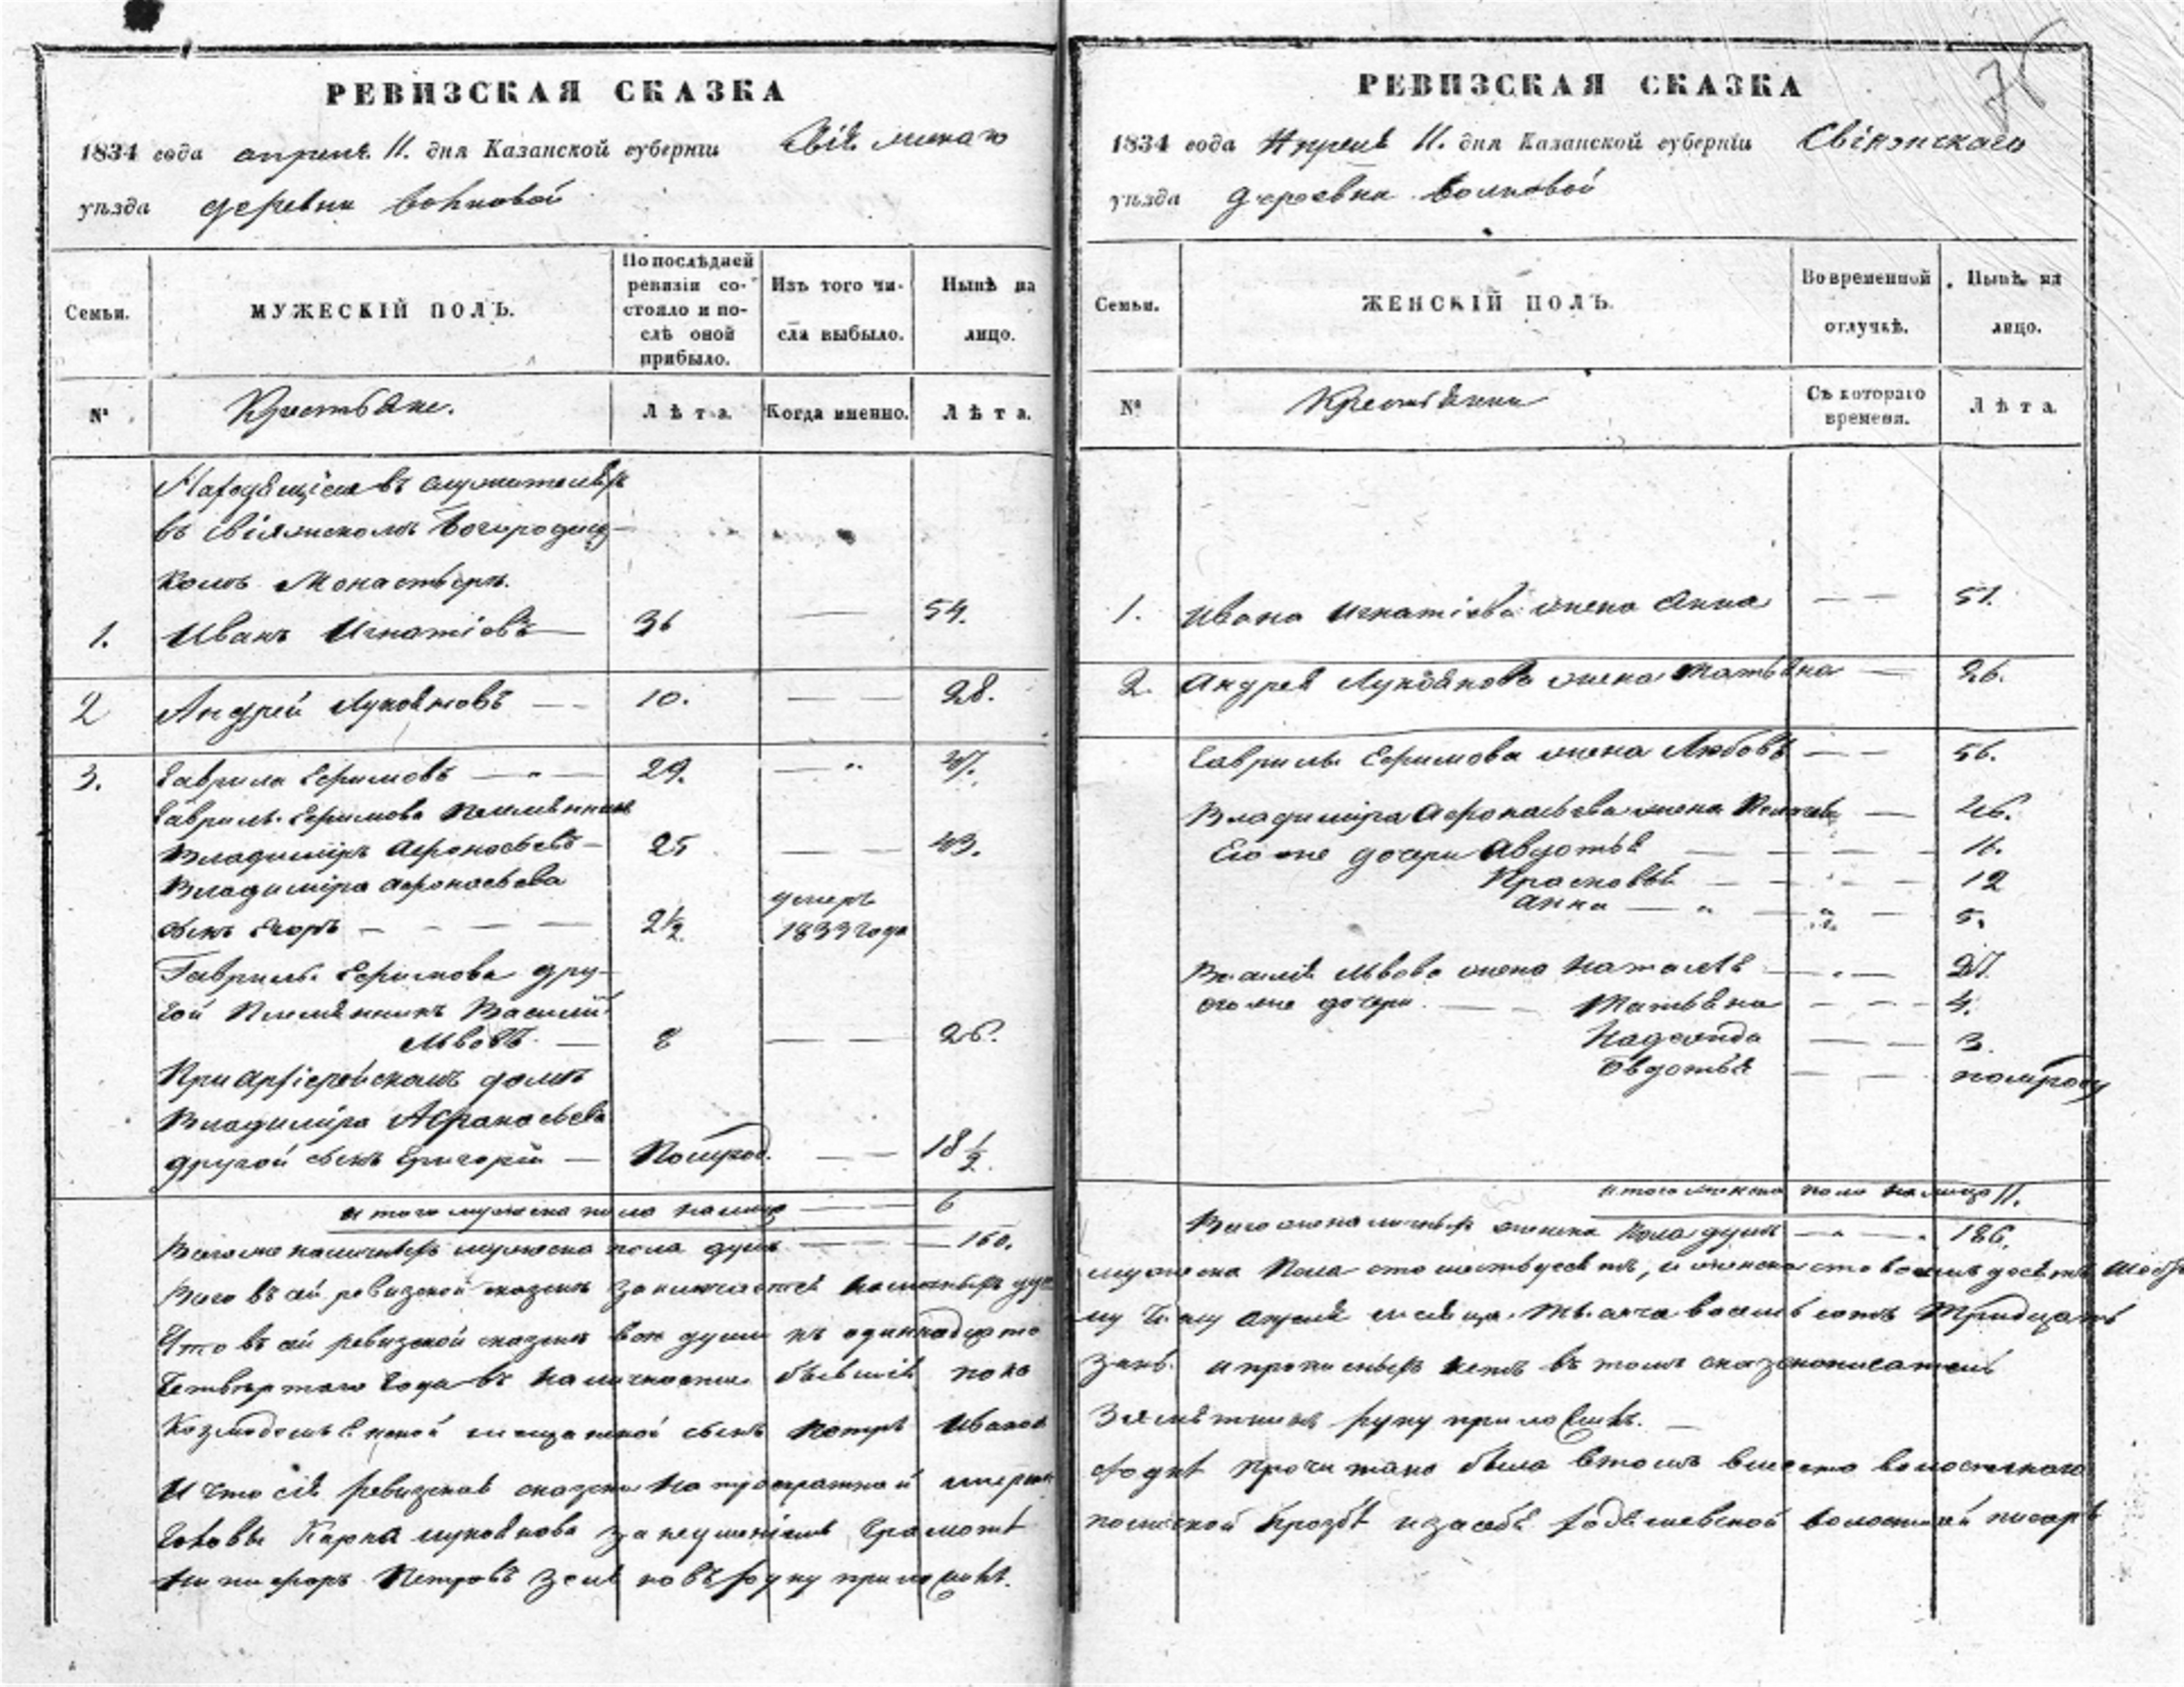 75
РЕВИЗСКАЯ СКАЗКА
1834 года апреля 11. дня Казанской губернiи Свiяжскаго
уѣзда деревни Волковой
Семьи.
МУЖЕСКIЙ ПОЛЪ.
По послѣдней
ревизiи со-
стояло и по-
слѣ оной
прибыло.
Изъ того чи-
сла выбыло.
Нынѣ на
лицо.
№
Крестьяне.
Лѣта.
Когда именно.
Лѣта.
Находящiеся въ служителяхъ
въ Свiяжскомъ Богородиц-
комъ Монастырѣ.
1. Иванъ Игнатiевъ — 36 — 54.
2 Андрей Лукояновъ — — 10. — — 28.
3. Гаврила Ефимовъ — " — 29. — "
Гаврилы Ефимова племянникъ
Владимiръ Афонасьевъ — 25 — — 43.
Владимiра Афонасьева
сынъ Егоръ — — — — 2½ умеръ 1833 года
Гаврилы Ефимова дру-
гой племянникъ Василiй
Львовъ — 8 — — 26.
При Архiерейскомъ домѣ
Владимiра Афанасьева
другой сынъ Григорiй — Послѣрод. — — 18½
Итого мужеска пола налицо — — 6
Всего же наличныхъ мужеска пола душъ — — — 160.
Всего въ сей ревизской сказкѣ заключается наличныхъ душъ
Что въ сей ревизской сказкѣ все души къ одиннадцато
четвертаго года въ наличности бывшiя пока
Козмодемьянской мещанской сынъ Петръ Иванов
И что сiя ревизская сказка на
головы Карпа Лукоянова за неуменiемъ грамотѣ
Никифоръ Петровъ руку приложилъ.
РЕВИЗСКАЯ СКАЗКА
1834 года Апреля 11. дня Казанской губернiи Свiяжскаго
уѣзда деревни Волковой
Семьи.
ЖЕНСКIЙ ПОЛЪ.
Во временной
отлучкѣ.
Нынѣ на
лицо.
№
Крестьянки
Съ котораго
времени.
Лѣта.
1. Ивана Игнатiева жена Анна — — 51.
2. Андрея Лукоянова жена Татьяна — 26.
Гаврилы Ефимова жена Любовь — — 56.
Владимiра Афонасьева жена —
Его же дочери Авдотья — — — —
Прасковья — — " — 12
Анна — " — " — 5.
Василiя Львова жена Наталья — " — 27.
его же дочери — — Татьяна — — — 4.
Надежда — — — 3.
Овдотья — — —
Итого женска пола налицо 11.
Всего же наличныхъ женска пола душъ — " — " 186.
мужеска пола сто шестьдесятъ, и женска сто восемьдесятъ
му числу апреля месяца тысяча восемь сотъ тридцать
заны. и прописныхъ нетъ въ томъ сказкописатель
руку приложилъ. —
сходѣ прочитана была втомъ вместо волостнаго
прозьбѣ и за себя волостной писарь